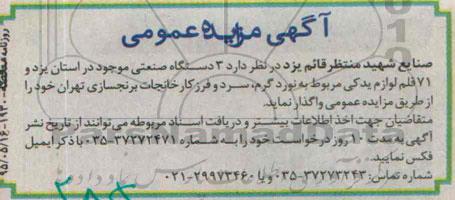 آگهی مزایده عمومی
صنایع شهید منتظر قائم یزد در نظر دارد ۳ دستگاه صنعتی موجود در استان یزد و
۷۱ قلم لوازم یدکی مربوط به نورد گرم، سرد و فرز کارخانجات برنجسازی تهران خود را
از طریق مزایده عمومی واگذار نماید.
متقاضیان جهت اخذ اطلاعات بیشتر و دریافت اسناد مربوطه می‌توانند از تاریخ نشر
آگهی به مدت ۱۰ روز درخواست خود را به شماره ۳۷۲۷۲۴۷۱-۰۳۵ با ذکر ایمیل
فکس نمایید.
شماره تماس: ۳۷۲۷۳۲۴۳-۰۳۵ و یا ۲۹۹۷۳۴۶۰-۰۲۱
ParsNamadData